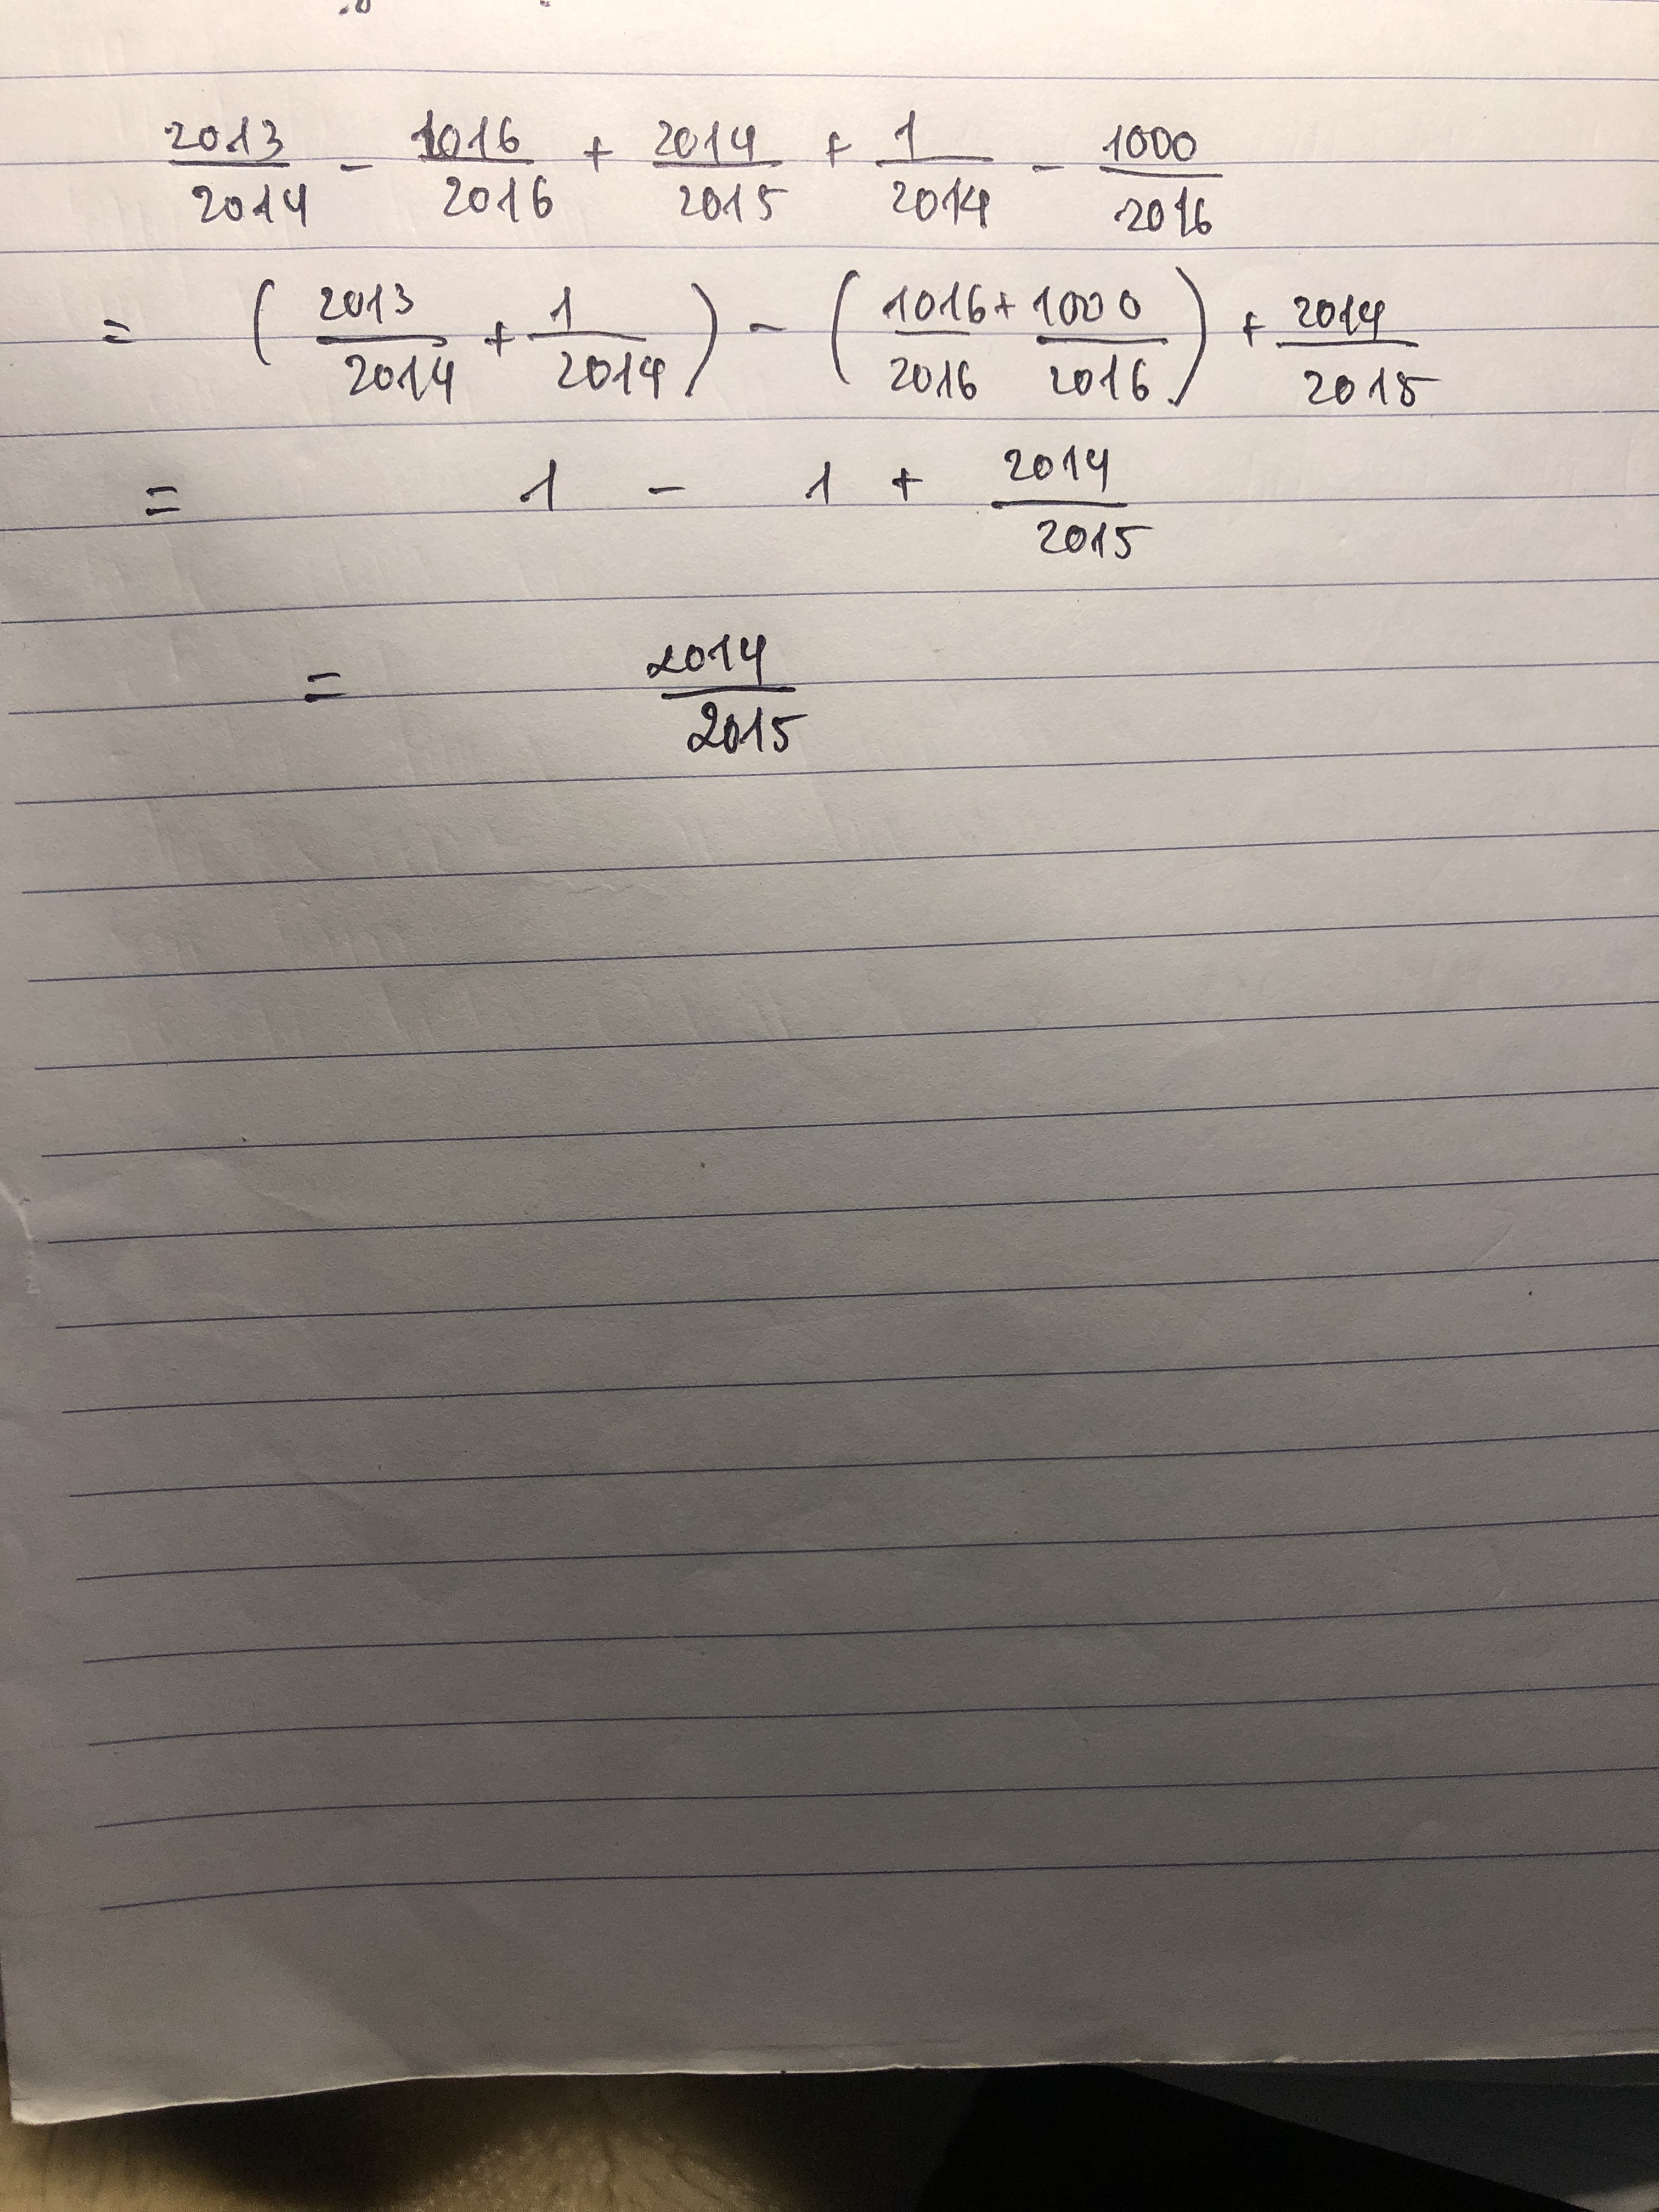 2013/2014 - 1016/2016 + 2014/2015 + 1/2014 - 1000/2016
= (2013/2014 + 1/2014) - (1016/2016 + 1000/2016) + 2014/2015
= 1 - 1 + 2014/2015
= 2014/2015